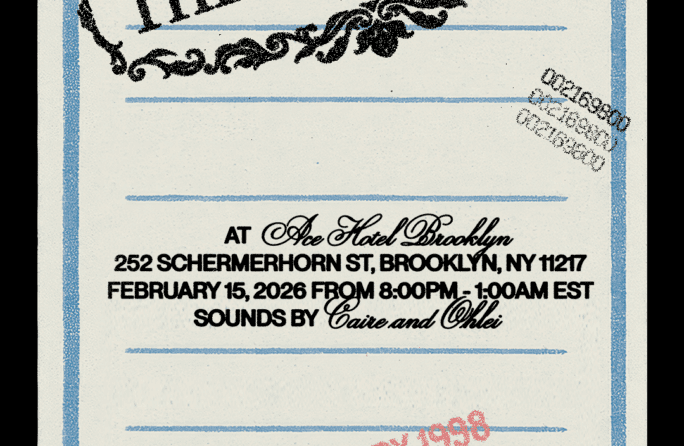 002169800
002169800
002169800
AT Ace Hotel Brooklyn
252 SCHERMERHORN ST, BROOKLYN, NY 11217
FEBRUARY 15, 2026 FROM 8:00PM - 1:00AM EST
SOUNDS BY Caire and Ohlei
1998